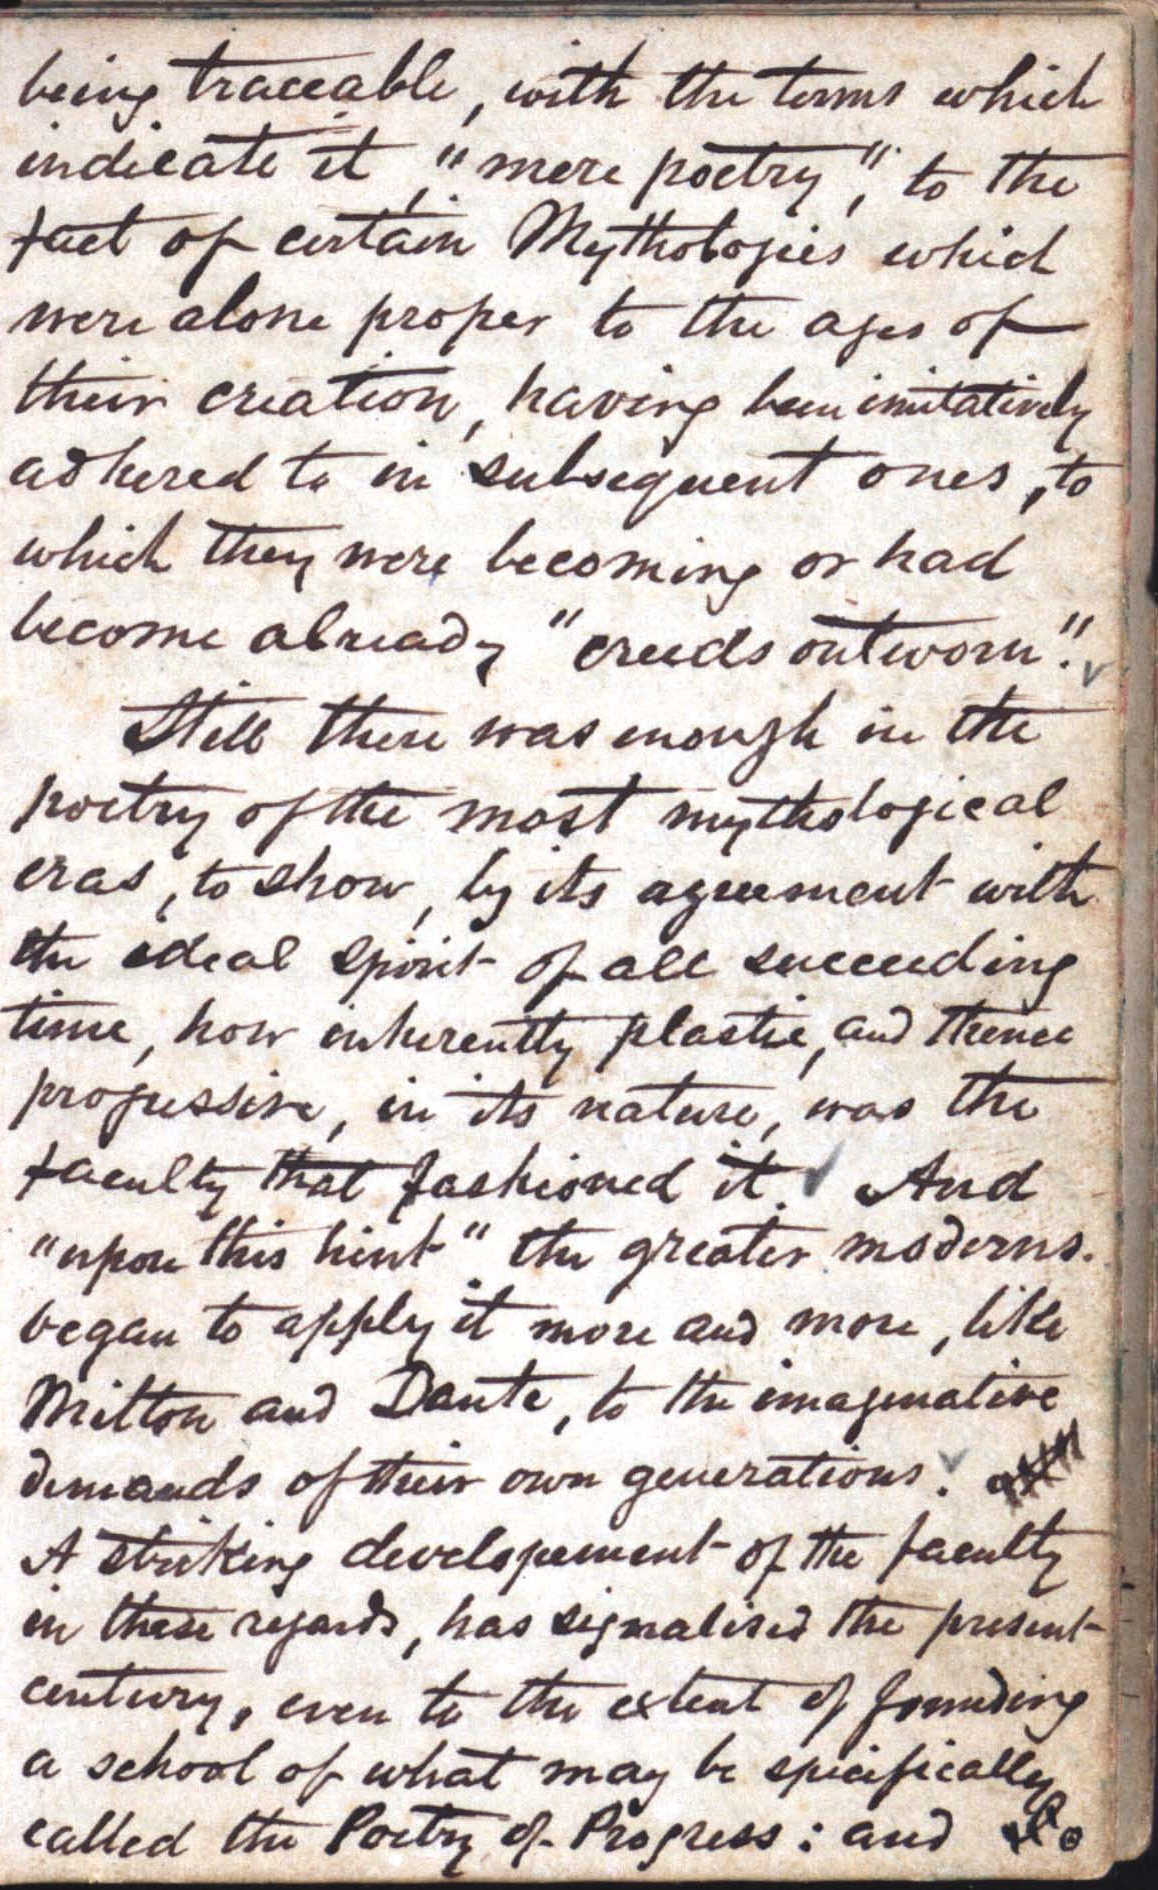 being traceable, with the terms which
indicate it, "mere poetry", to the
fact of certain Mythologies which
were alone proper to the ages of
their creation, having been imitatively
adhered to in subsequent ones, to
which they were becoming or had
become already "creeds outworn".
Still there was enough in the
poetry of the most mythological
eras, to show, by its agreement with
the ideal spirit of all succeeding
time, how inherently plastic, and thence
progressive, in its nature, was the
faculty that fashioned it. And
"upon this hint" the greater moderns
began to apply it more and more, like
Milton and Dante, to the imaginative
demands of their own generations.
A striking developement of the faculty
in these regards, has signalised the present
century, even to the extent of founding
a school of what may be specifically
called the Poetry of Progress: and